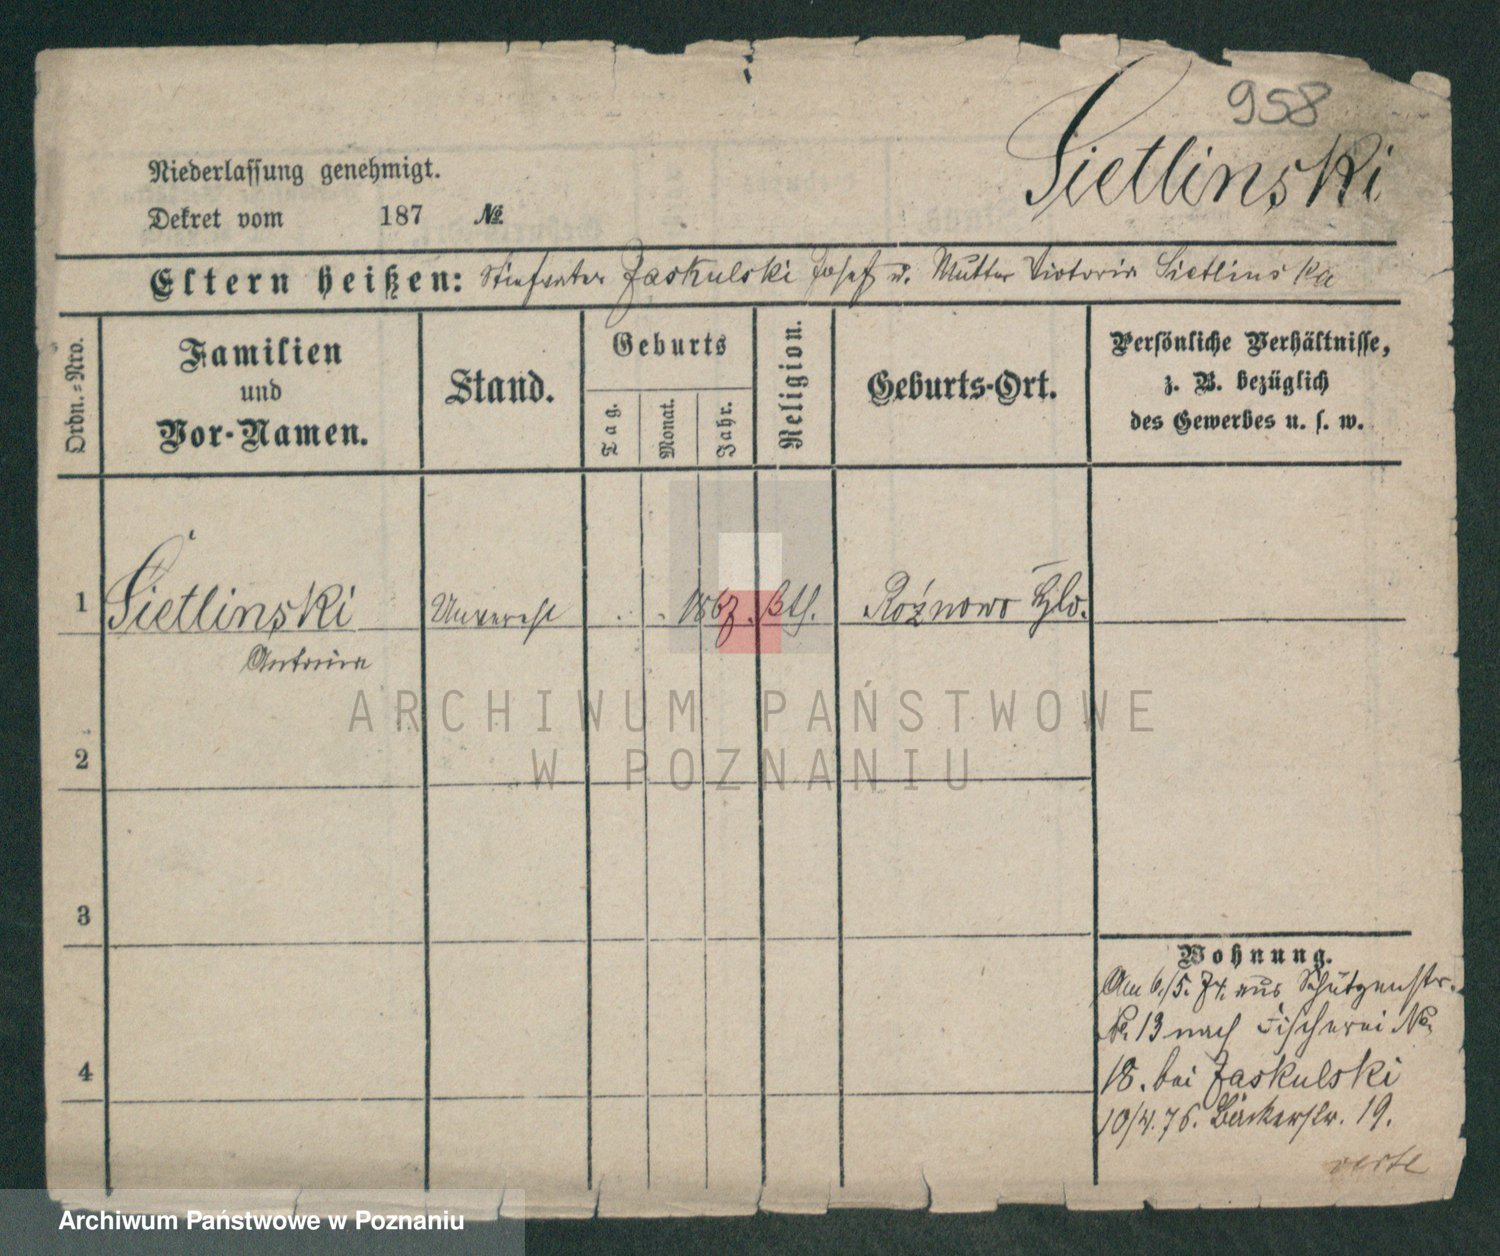 958
Sietlinski
Niederlassung genehmigt.
Dekret vom 187 №
Eltern heißen: Stiefvater Jaskulski Josef u. Mutter Victoria Sietlinska
Ordn.-Nro.
Familien
und
Vor-Namen.
Stand.
Geburts
Tag.
Monat.
Jahr.
Religion.
Geburts-Ort.
Persönliche Verhältnisse,
z. B. bezüglich
des Gewerbes u. s. w.
1 Sietlinski Kth. Rożnowo
2
3
4
Wohnung.
Am 6./5. 74. aus Schützenstr.
№. 13 nach Fischerei №.
18. bei Jaskulski
10/4. 76. Bäckerstr. 19.
verte
ARCHIWUM PAŃSTWOWE
W POZNANIU
Archiwum Państwowe w Poznaniu